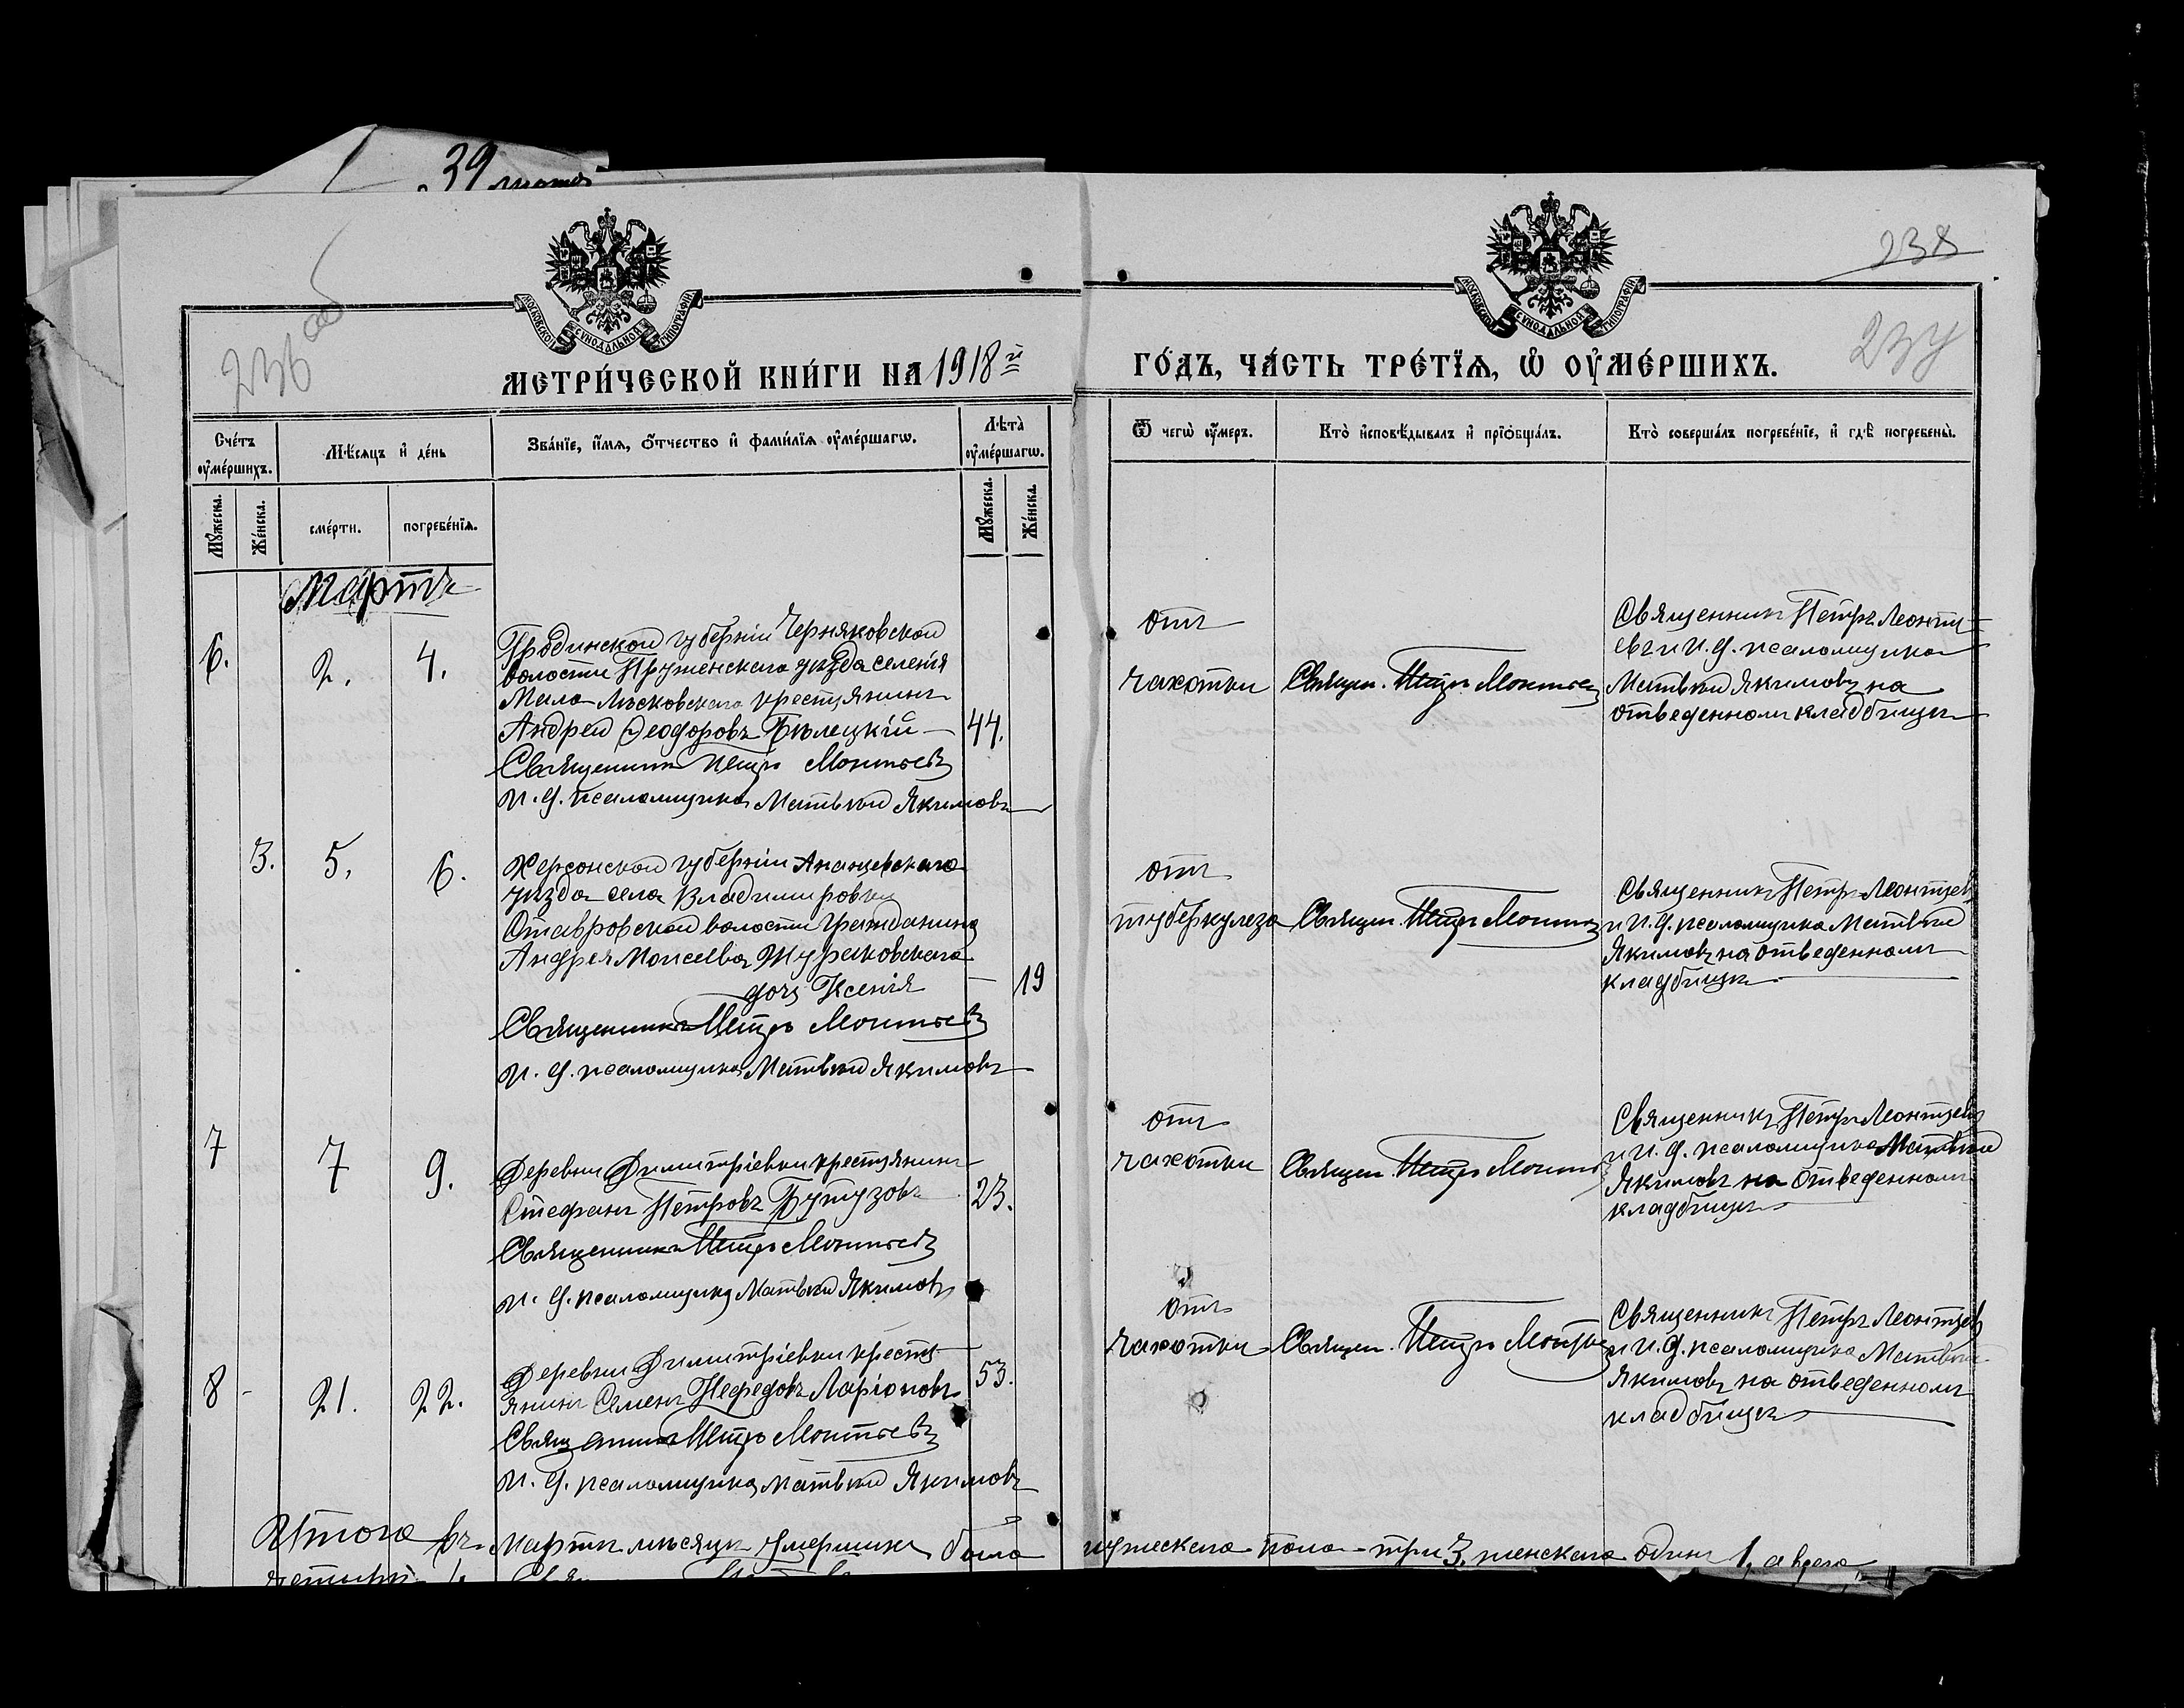 39
МОСКОВСКОЙ СѴНОДАЛЬНОЙ ТИПОГРАФІИ
МОСКОВСКОЙ СѴНОДАЛЬНОЙ ТИПОГРАФІИ
238
236 об
237
МЕТРИ́ЧЕСКОЙ КНИ́ГИ НА 1918й
ГО́ДЪ, ЧА́СТЬ ТРЕ́ТЇѦ, Ѽ ОУ҆МЕ́РШИХЪ.
Сче́тъ оу҆ме́ршихъ.
Мѣ́сяцъ и҆ де́нь
Зва́нїе, и҆́мѧ, ѻ҆́тчество и҆ фами́лїѧ оу҆ме́ршагѡ.
Лѣ̀та оу҆ме́ршагѡ.
Ѿ чегѡ̀ оу҆́меръ.
Кто̀ и҆сповѣ́дывалъ и҆ прїѡбща́лъ.
Кто̀ соверша́лъ погребе́нїе, и҆ гдѣ̀ погребены̀.
Мꙋ́жеска.
Же́нска.
сме́рти.
погребе́нїѧ.
Мꙋ́жеска.
Же́нска.
Мартъ
6.
2.
4.
Гродинской губерніи Черняковской
волости Пруженскаго уѣзда селенія
Мало-Лѣсковскаго крестьянинъ
Андрей Ѳеодоровъ Бѣлецкій
44.
Священникъ Петръ Леонтьевъ
и. д. псаломщика Матвѣй Якимовъ
отъ
чахотки
Священ. Петръ Леонтьевъ
Священникъ Петръ Леонть-
евъ и И. д. псаломщика
Матвѣй Якимовъ на
отведенномъ кладбищѣ
3.
5.
6.
Херсонской губерніи Ананьевскаго
уѣзда села Владимировки
Ставровской волости гражданина
Андрея Моисеева Жураковскаго
дочь Ксенія
19
Священникъ Петръ Леонтьевъ
и. д. псаломщика Матвѣй Якимовъ
отъ
туберкулеза
Священ. Петръ Леонтьевъ
Священникъ Петръ Леонтьевъ
и И. д. псаломщика Матвѣй
Якимовъ на отведенномъ
кладбищѣ
7
7
9.
Деревни Димитріевки крестьянинъ
Стефанъ Петровъ Бутузовъ
23.
Священникъ Петръ Леонтьевъ
и. д. псаломщика Матвѣй Якимовъ
отъ
чахотки
Священ. Петръ Леонтьевъ
Священникъ Петръ Леонтьевъ
и И. д. псаломщика Матвѣй
Якимовъ на отведенномъ
кладбищѣ
8
21.
22.
Деревни Димитріевки кресть-
янинъ Семенъ Нефедовъ Ларіоновъ
53.
Священникъ Петръ Леонтьевъ
И. д. псаломщика Матвѣй Якимовъ
отъ
чахотки
Священ. Петръ Леонтьевъ
Священникъ Петръ Леонтьевъ
и И. д. псаломщика Матвѣй
Якимовъ на отведенномъ
кладбищѣ
Итого въ Мартѣ мѣсяцѣ умершихъ было мужескаго пола - три 3, женскаго одинъ 1, а всего